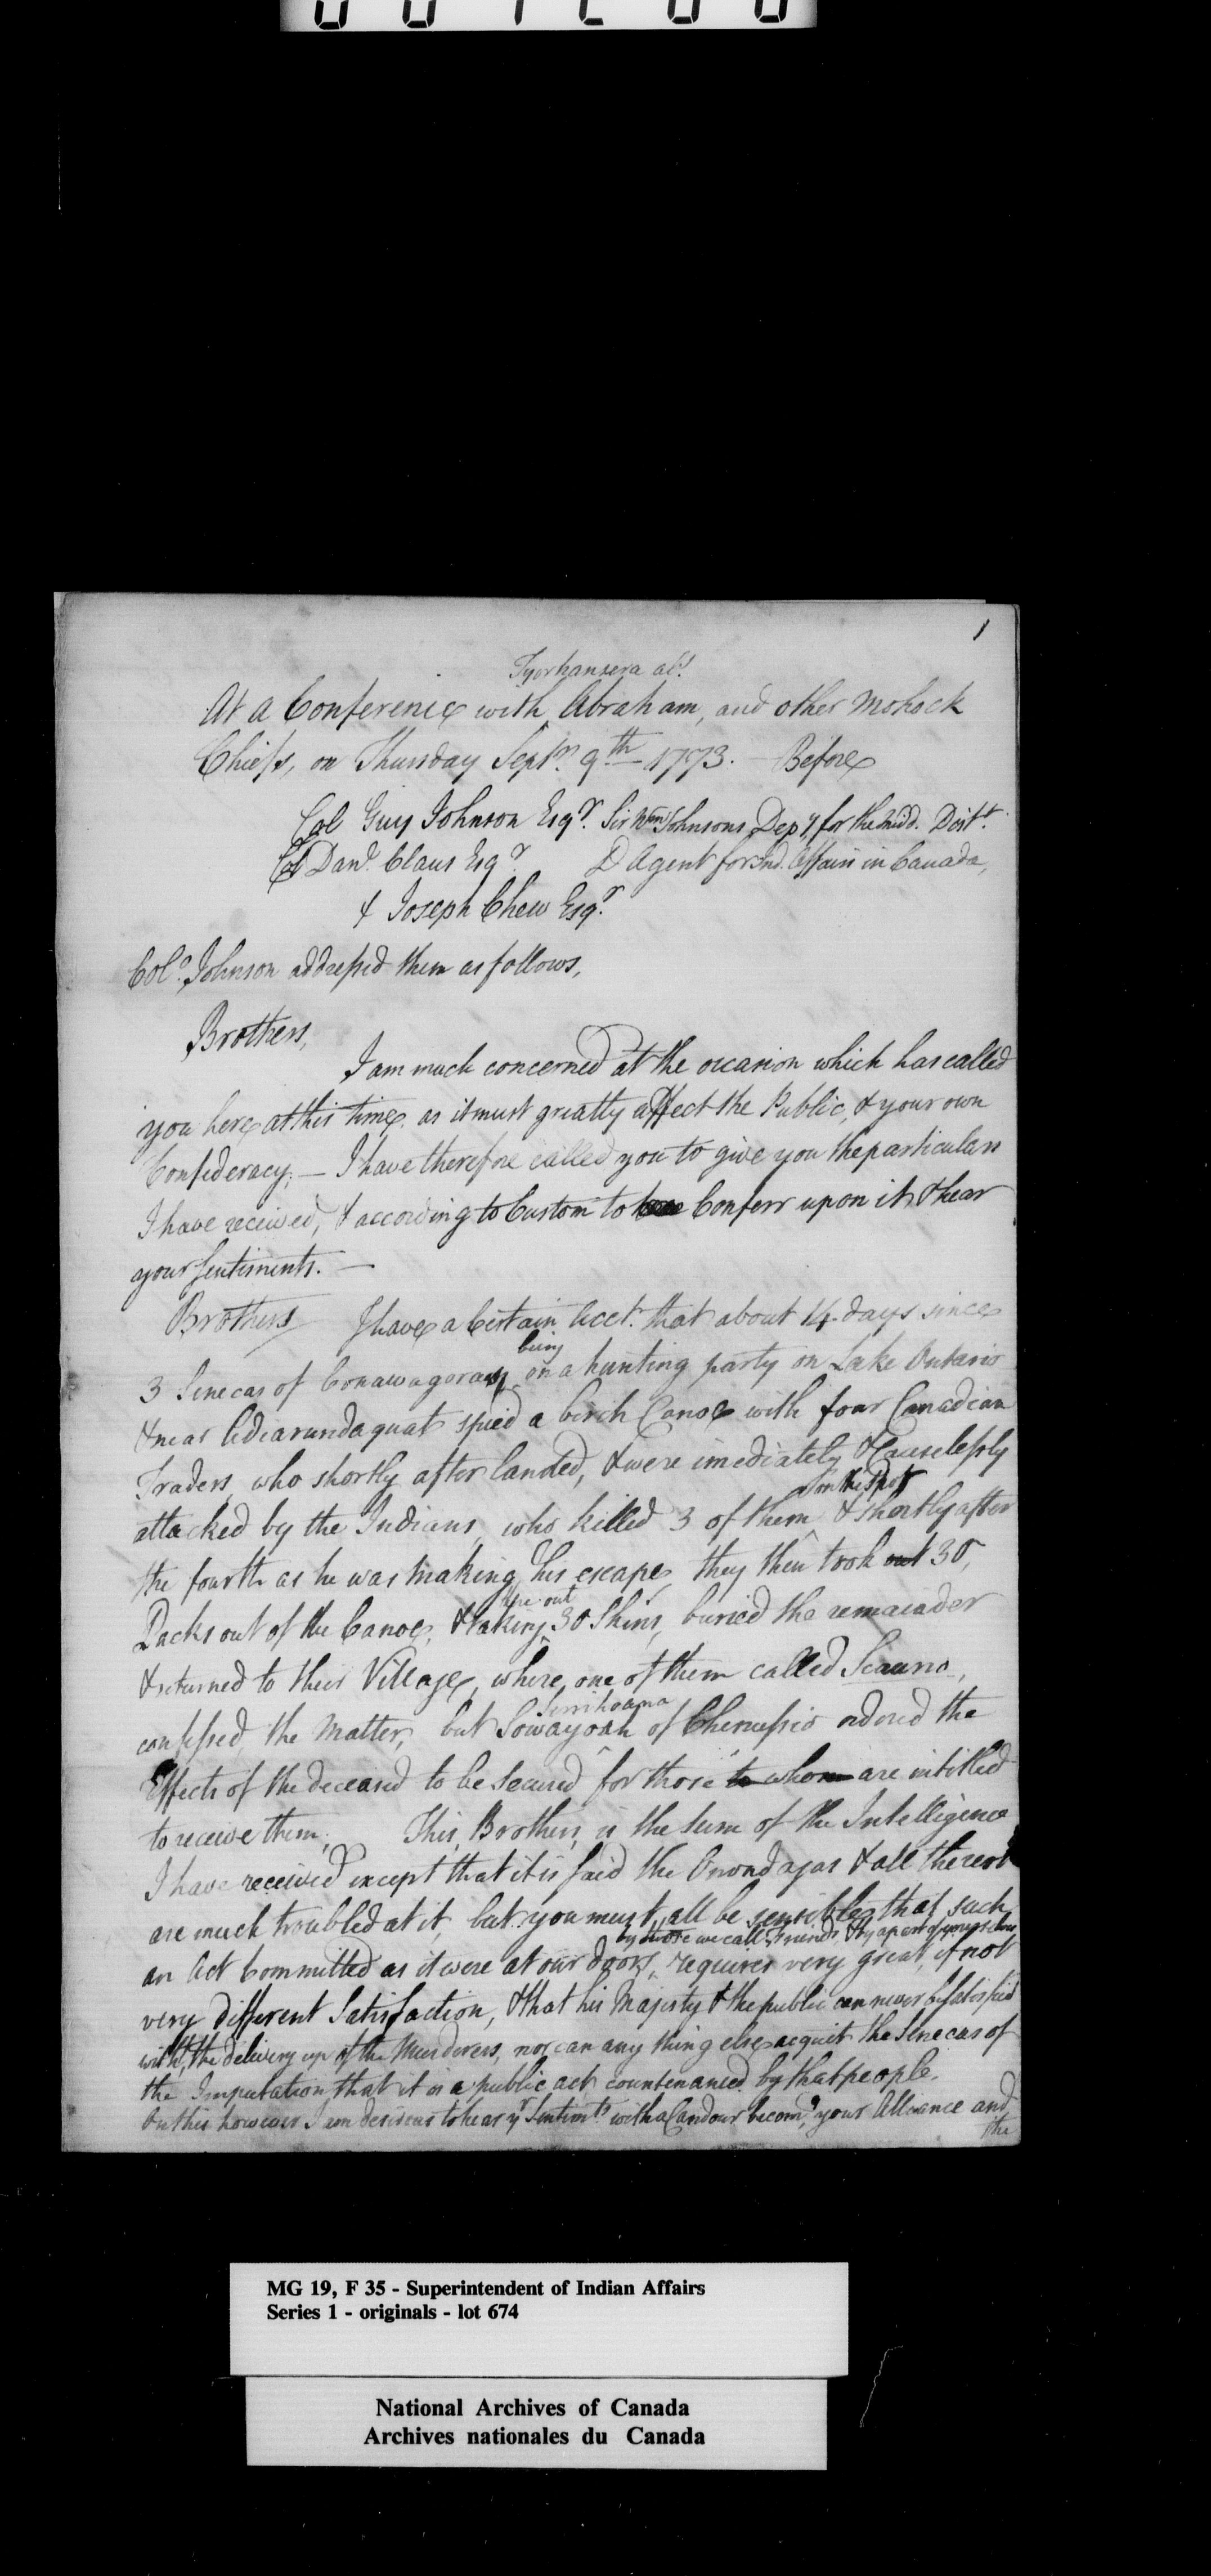 1
Tyorhansera als.
At a Conference with Abraham, and other Mohock
Chiefs, on Thursday Septr. 9th 1773. Before
Col Guy Johnson Esqr. Sir Wm Johnsons Depy for the midd. Distt.
Col Danl. Claus Esqr. D Agent for Ind. Affairs in Canada,
& Joseph Chew Esqr.
Colo. Johnson addressed them as follows,
Brothers,
I am much concerned at the occasion which has called
you here at this time, as it must greatly affect the Public, & your own
Confederacy; — I have therefore called you to give you the particulars
I have received, & according to Custom to Conferr upon it & hear
your sentiments. —
Brothers I have a Certain Acct. that about 14 days since
being
3 Senecas of Conawagoray on a hunting party on Lake Ontario
& near Adiarundaquat spied a birch Canoe with four Canadian
Traders, who shortly after landed, & were imediately & Causelessly
on the spot
attacked by the Indians, who killed 3 of them & shortly after
the fourth as he was making his escape, they then took out 30,
Packs out of the Canoe, & taking 30 Skins, buried the remainder
& returned to their Village, where one of them called Scauno,
Serrihoana
confessed the Matter, but Sowayoah of Chenussio ordered the
Effects of the deceased to be secured for those to whom are intitled
to receive them, This, Brothers, is the sum of the Intelligence
I have received except that it is said the Onondagas & all the rest
are much troubled at it, but you must all be sensible that such
by those we call Friends & by a part of yourselves
an Act Committed as it were at our doors, requires very great, if not
very different Satisfaction, & that his Majesty & the public can never be satisfied
witht. the delivery up of the Murderers, nor can any thing else acquit the Senecas of
the Imputation that it is a public act countenanced by that people.
On this however I am desirous to hear yr. Sentimts. with a Candour becomg. your Alliance and
the
MG 19, F 35 - Superintendent of Indian Affairs
Series 1 - originals - lot 674
National Archives of Canada
Archives nationales du Canada